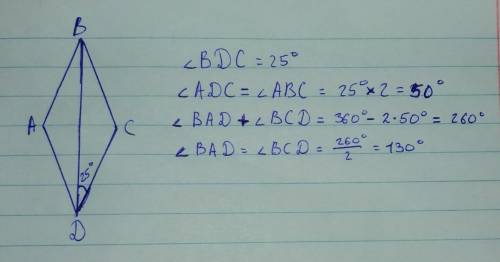 B
A
C
25°
D
∠BDC = 25°
∠ADC = ∠ABC = 25° × 2 = 50°
∠BAD + ∠BCD = 360° - 2·50° = 260°
∠BAD = ∠BCD = 260°/2 = 130°